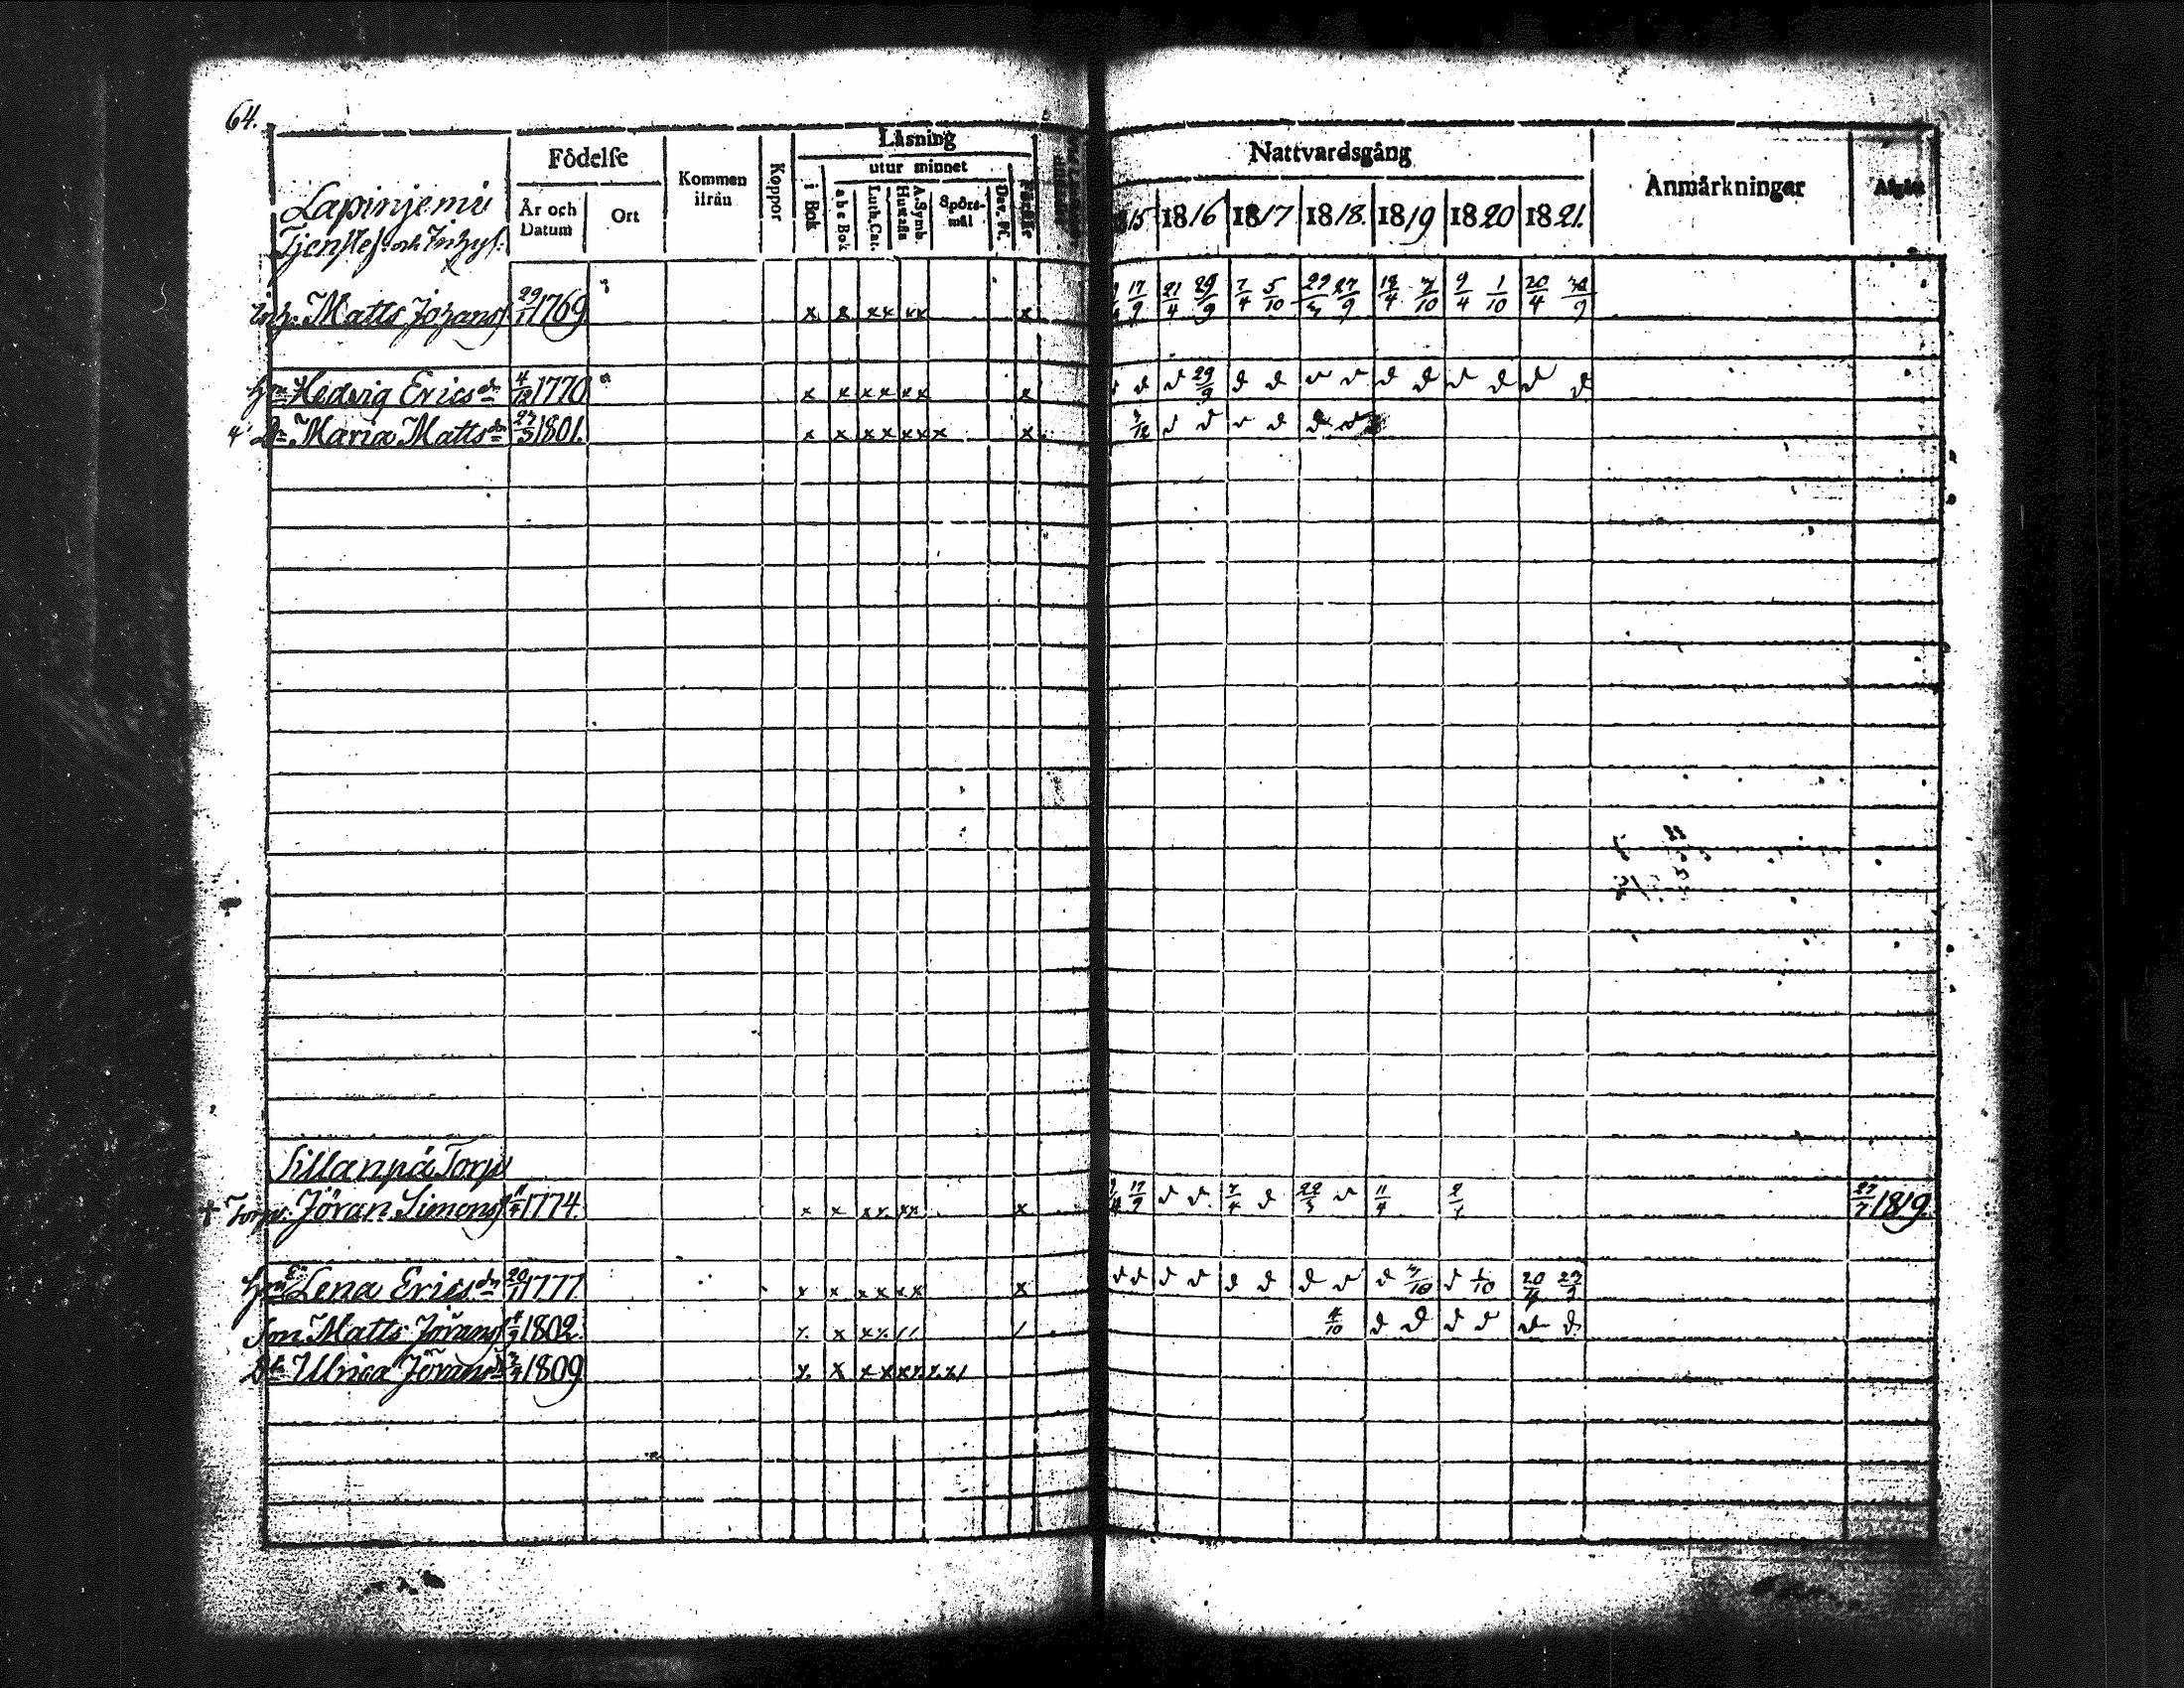 64.
Lapinjemi
Tjenstef. och Inhys.
Födelse
År och Datum
Ort
Kommen ifrån
Koppor
Läsning
i Bok
utur minnet
a b c Bok
Luth. Cat.
A. Symb. Hustafla
Spörs-mål
Dav. Ps.
Nattvardsgång
1816 1817 1818. 1819 1820 1821.
Anmärkningar
Afgått
Inh. Matts Johans 29/1 1769 x x x x x x x 17/9 21/4 29/9 7/4 5/10 27/9 18/4 7/10 9/4 1/10 20/4
Hu Hedvig Erics dr 4/12 1770 x x x x x x x d d 29/9 d d d d d d d d d d
Dr Maria Matts dr 27/5 1801. x x x x x x x x d d d d d d
Sillanpä Torp
† Torp. Jöran Simons 1774. x x x x x x x 17/9 d d 7/4 d 22/3 d 11/4 27/7 1819.
Hu Lena Erics dr 20/1 1777. x x x x x x x d d d d d d d d d d 1/10 20/4 23/9
Son Matts Jörans 1802. x x x x / / / 4/10 d d d d d d
Dr Ulrica Jörans dr 1809 x x x x x x x x /